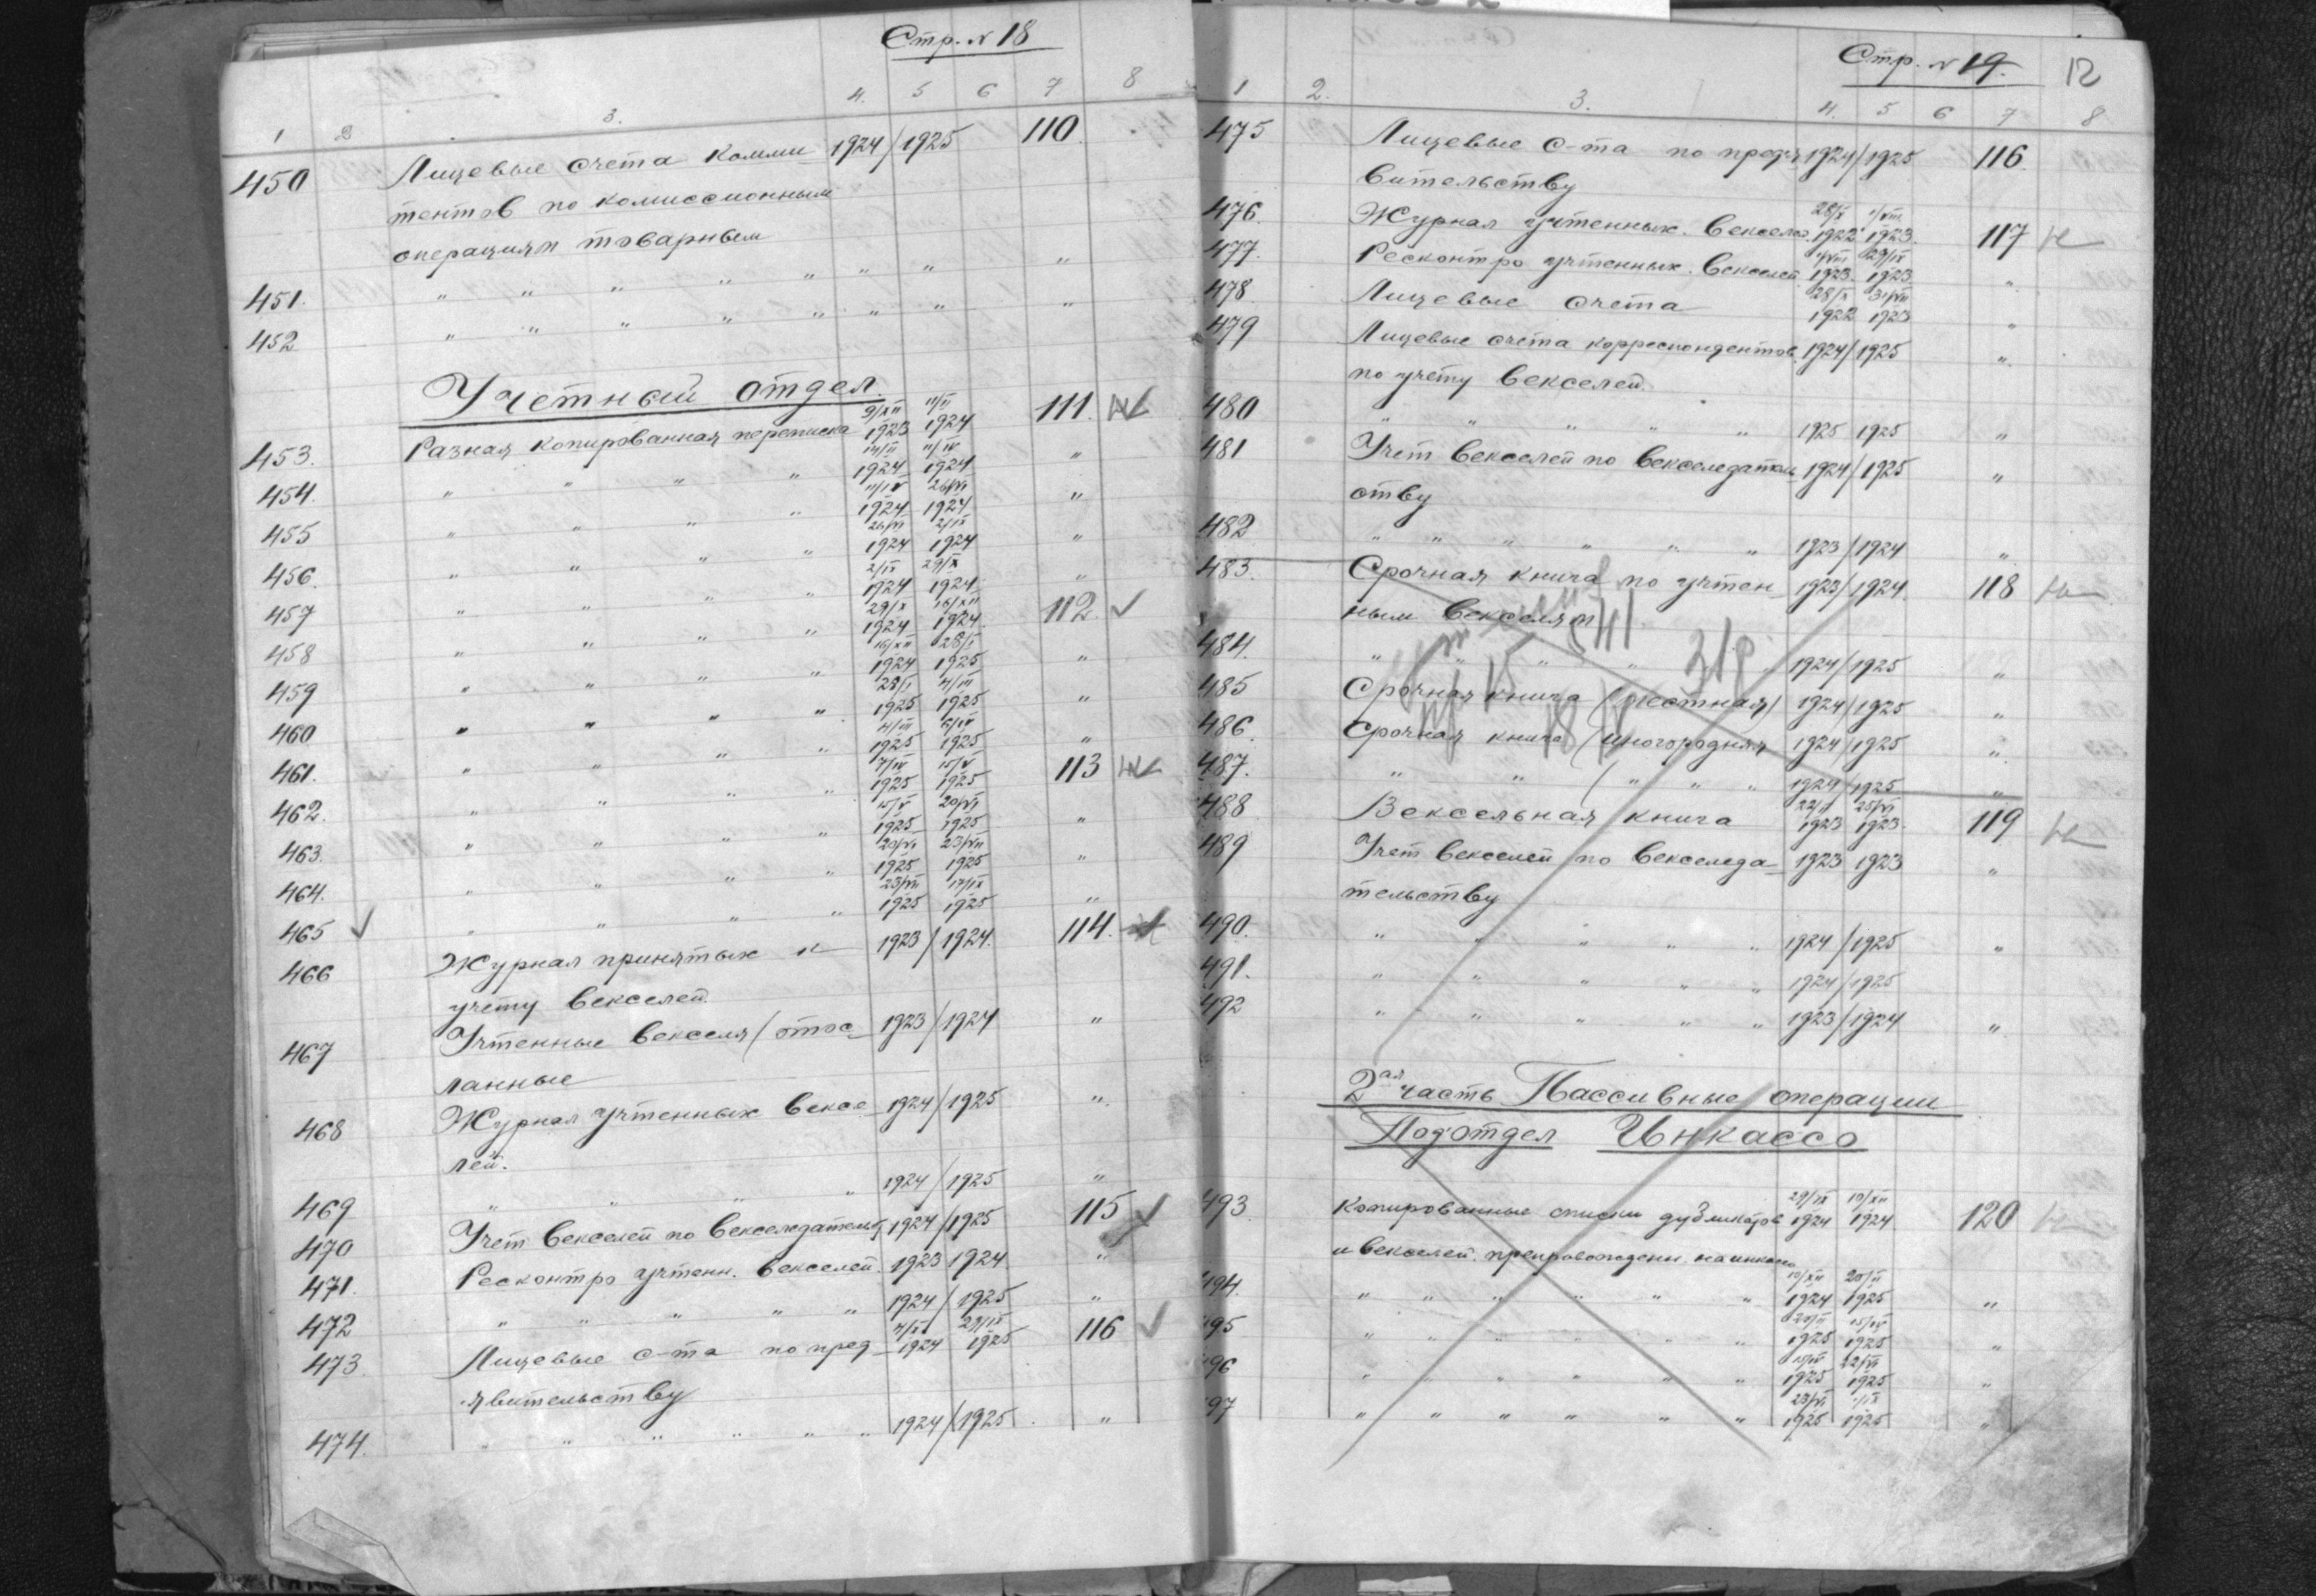 Стр. № 18
1 2 3. 4. 5 6 7 8
450 Лицевые счета комми- 1924/1925 110.
тентов по комиссионным
операциям товарным
451. " " " " " " " "
452 " " " " " " " "
Учетный отдел.
453. Разная копированная переписка 9/XII 1923 11/II 1924 111.
454. " " " " 14/II 1924 11/IV 1924 "
455 " " " " 11/IV 1924 26/VI 1924 "
456. " " " " 26/VI 1924 2/IX 1924 "
457 " " " " 2/IX 1924 29/X 1924 "
458 " " " " 29/X 1924 16/XII 1924 112.
459 " " " " 16/XII 1924 28/I 1925 "
460 " " " " 28/I 1925 4/III 1925 "
461. " " " " 4/III 1925 6/IV 1925 "
462. " " " " 7/IV 1925 15/V 1925 113
463. " " " " 15/V 1925 20/VI 1925 "
464. " " " " 20/VI 1925 23/VII 1925 "
465 " " " " 23/VII 1925 17/IX 1925 "
466 Журнал принятых к 1923/1924. 114.
учету векселей
467 Учтенные векселя (отос- 1923/1924 "
ланные
468 Журнал учтенных вексе- 1924/1925 "
лей.
469 " " " " 1924/1925 "
470 Учет векселей по векседательс. 1924/1925 115
471. Ресконтро учтенн. векселей. 1923 1924 "
472 " " " " " 1924/1925 "
473 Лицевые с-та по пред- 1924 29/IX 1925 116
явительству
474. " " " " " " 1924/1925 "
Стр. № 19. 12
1 2. 3. 4. 5 6 7 8
475 Лицевые с-та по пред'я 1924/1925 116.
вительству
476. Журнал учтенных. векселей. 28/X 1922 1/VIII 1923. 117
477. Ресконтро учтенных. векселей 1/VIII 1923. 29/IX 1923 "
478 Лицевые счета 28/X 1922 31/VII 1923 "
479 Лицевые счета корреспондентов 1924/1925 "
по учету векселей.
480 " " " " " 1925 1925 "
481 Учет векселей по векселедатель- 1924/1925 "
ству
482 " " " " " " 1923/1924 "
483. Срочная книга по учтен 1923/1924. 118
ным векселям
484. " " " " " 1924/1925 "
485 Срочная книга (местная) 1924/1925 "
486. Срочная книга (иногородняя 1924/1925 "
487. " " ( " " " 1924/1925 "
488 Вексельная книга 22/II 1923 25/VI 1923. 119
489 Учет векселей по векселеда- 1923 1923 "
тельству
490. " " " " " 1924/1925 "
491. " " " " " 1924/1925
492 " " " " " 1923/1924 "
2ая часть Пассивные операции
Под'отдел Инкассо
493 Копированные списки дубликатов 29/IX 1924 10/XII 1924 120
и векселей. препровожденн. на инкассо
494. " " " " " " 10/XII 1924 20/II 1925 "
95 " " " " " " 20/II 1925 15/IV 1925 "
96 " " " " " " 15/IV 1925 22/VI 1925 "
97 " " " " " " 23/VI 1925 1/IX 1925 "